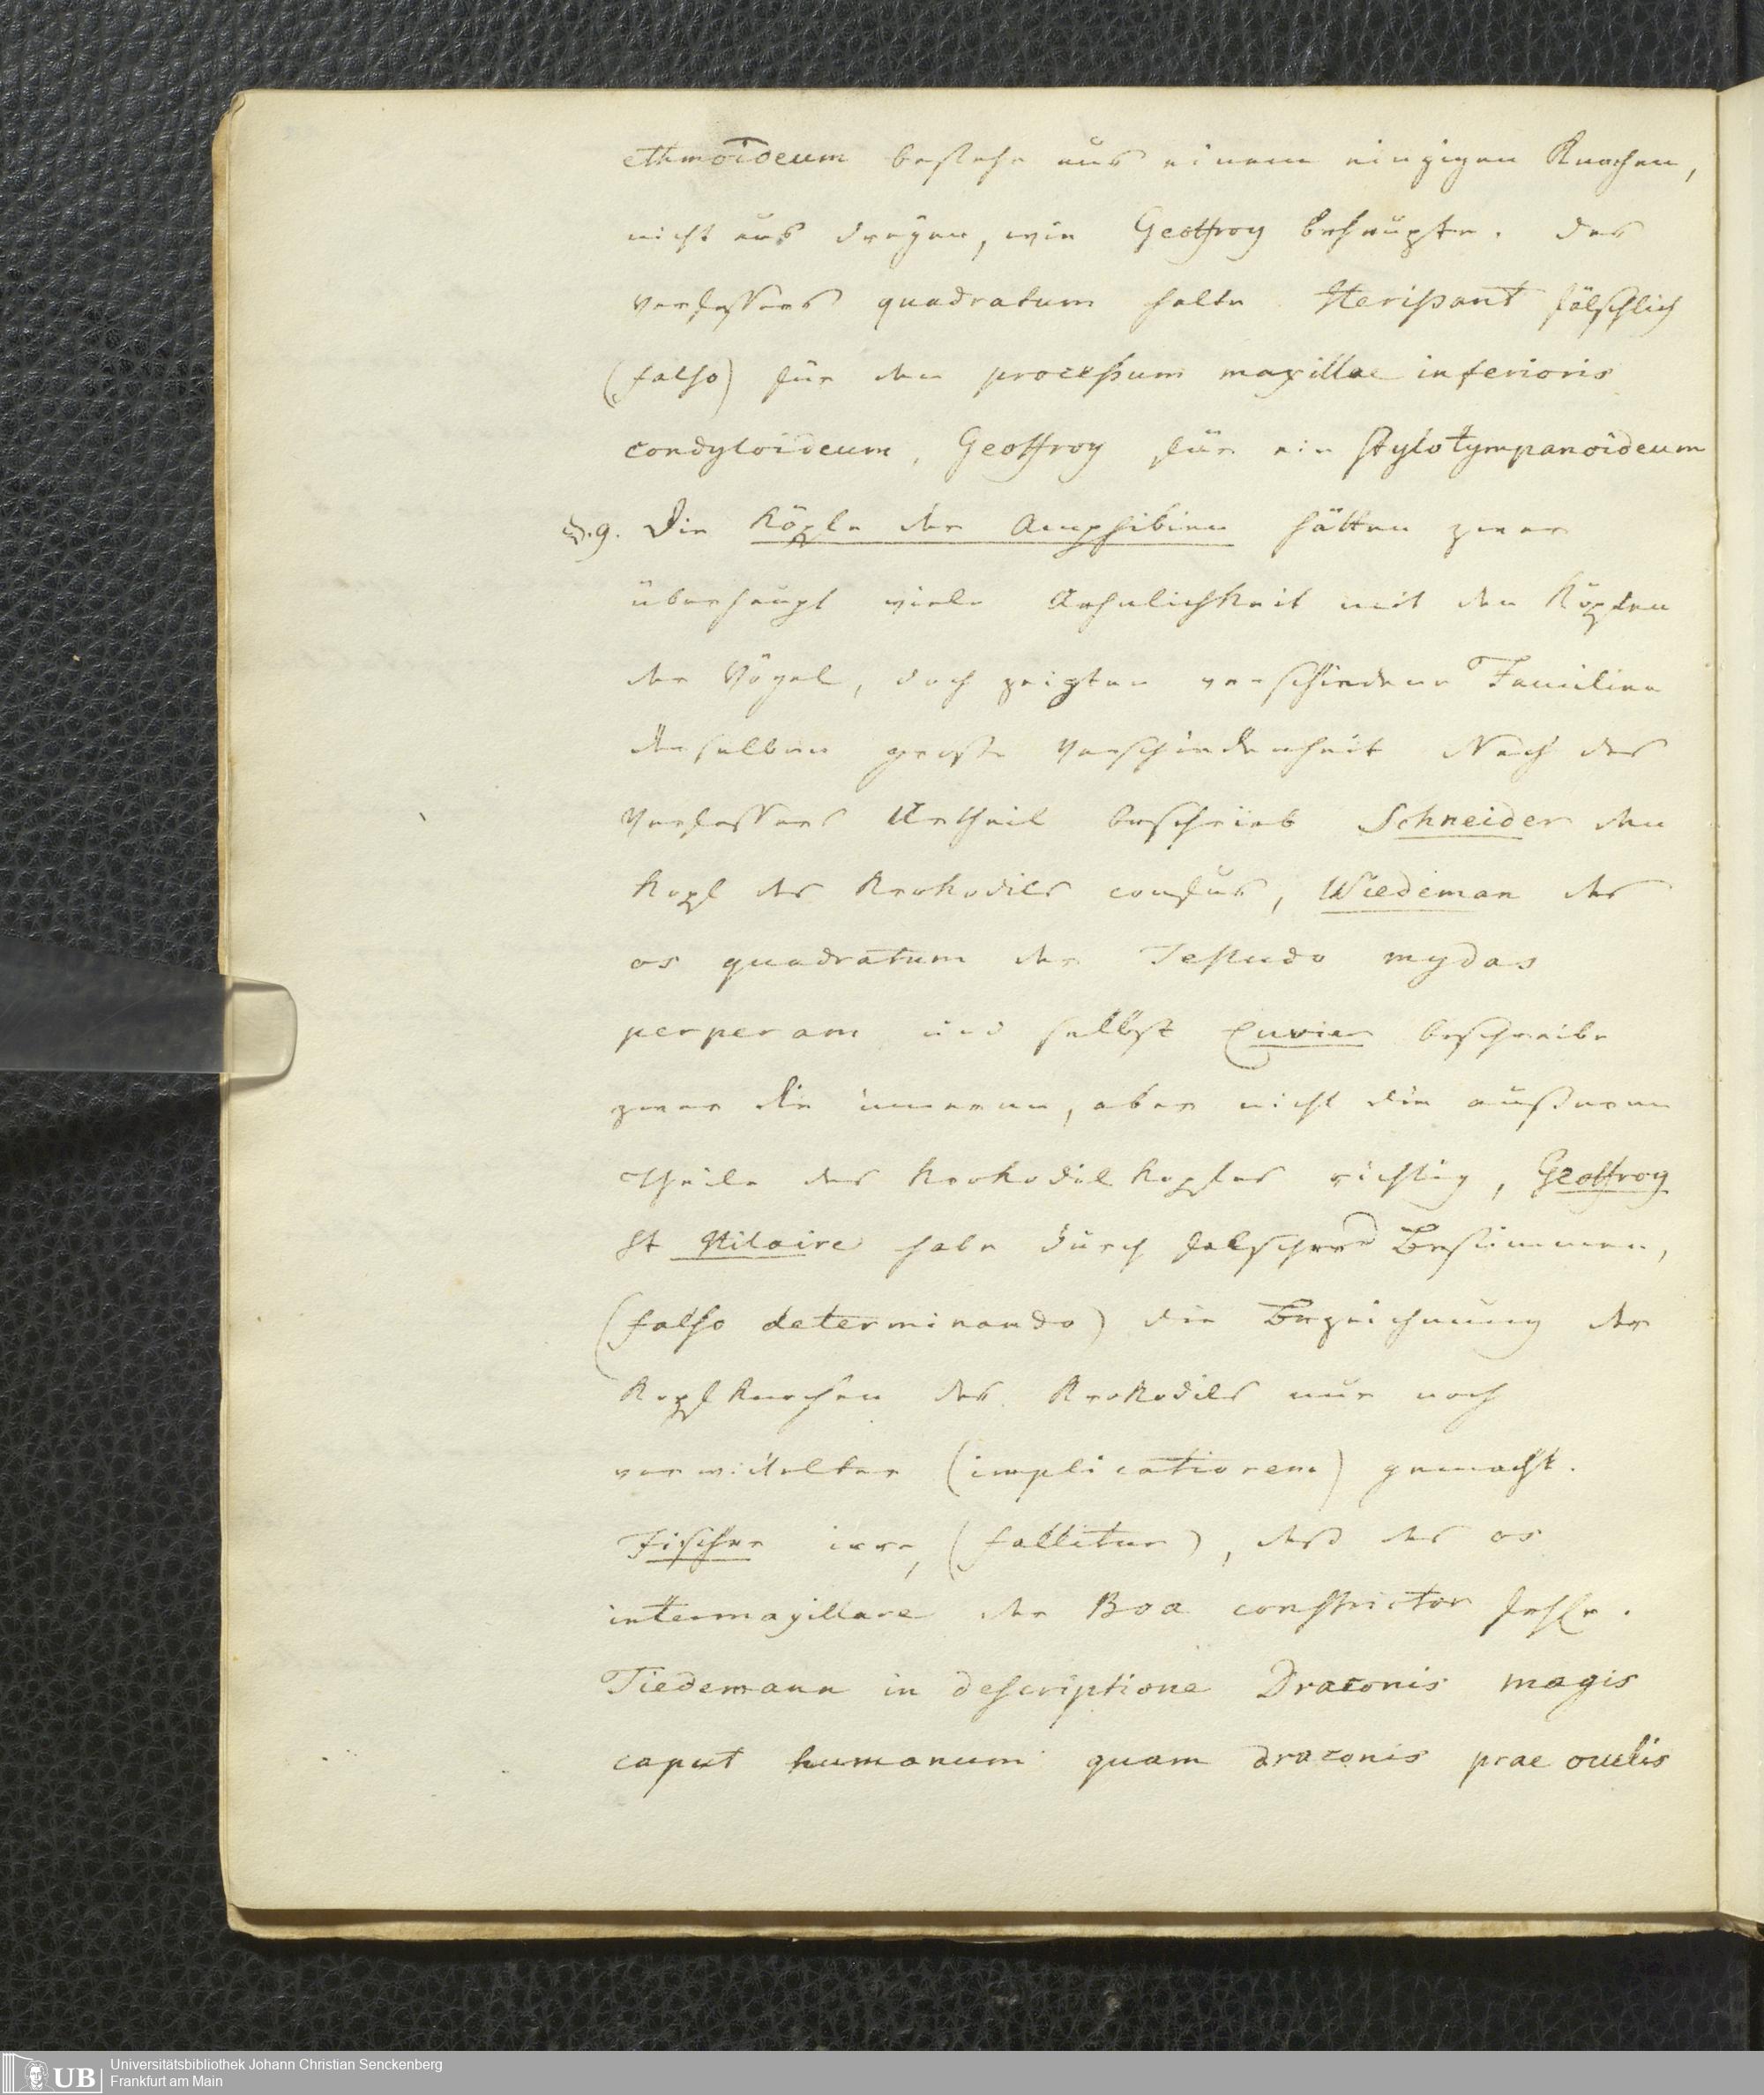 ethmoideum bestehe aus einem einzigen Knochen,
nicht aus dreyen, wie Geoffroy behaupte. Des
Verfassers quadratum halte Herißant fälschlich
(falso) für den proceßum maxillae inferioris
condyloideum, Geoffroy für ein stylotympanoideum
§.9. Die Köpfe der Amphibien hätten zwar
überhaupt viele Aehnlichkeit mit den Köpfen
der Vögel, doch zeigten verschiedene Familien
derselben große Verschiedenheit Nach des
Verfassers Urtheil beschrieb Schneider den
Kopf des Krokodils confus, Wiedeman das
os quadratum der Testudo mydas
perperam und selbst Cuvier beschreibe
zwar die inneren, aber nicht die außeren
Theile des Krokodilkopfes richtig, Geoffroy
St Hilaire habe durch falsches Bestimmen,
(falso determinando) die Bezeichnung der
Kopfknochen des Krokodils nur noch
verwickelter (implicatiorem) gemacht.
Fischer irre, (fallitur), daß das os
intermaxillare der Boa constrictor fehle.
Tiedemann in descriptione Draconis magis
caput humanum quam draconis prae oculis
Universitätsbibliothek Johann Christian Senckenberg
UB
Frankfurt am Main